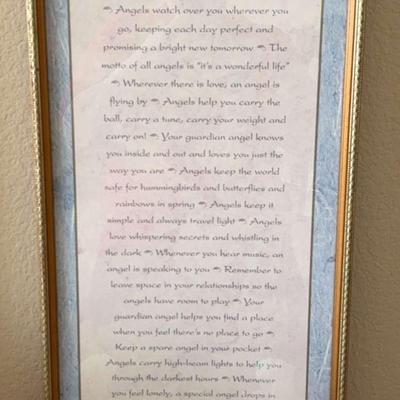 Angels watch over you wherever you
go, keeping each day perfect and
promising a bright new tomorrow The
motto of all angels is "it's a wonderful life"
Wherever there is love, an angel is
flying by Angels help you carry the
ball, carry a tune, carry your weight and
carry on! Your guardian angel knows
you inside and out and loves you just the
way you are Angels keep the world
safe for hummingbirds and butterflies and
rainbows in spring Angels keep it
simple and always travel light Angels
love whispering secrets and whistling in
the dark Whenever you hear music, an
angel is speaking to you Remember to
leave space in your relationships so the
angels have room to play Your
guardian angel helps you find a place
when you feel there's no place to go
Keep a spare angel in your pocket
Angels carry high-beam lights to help you
through the darkest hours Whenever
you feel lonely, a special angel drops in